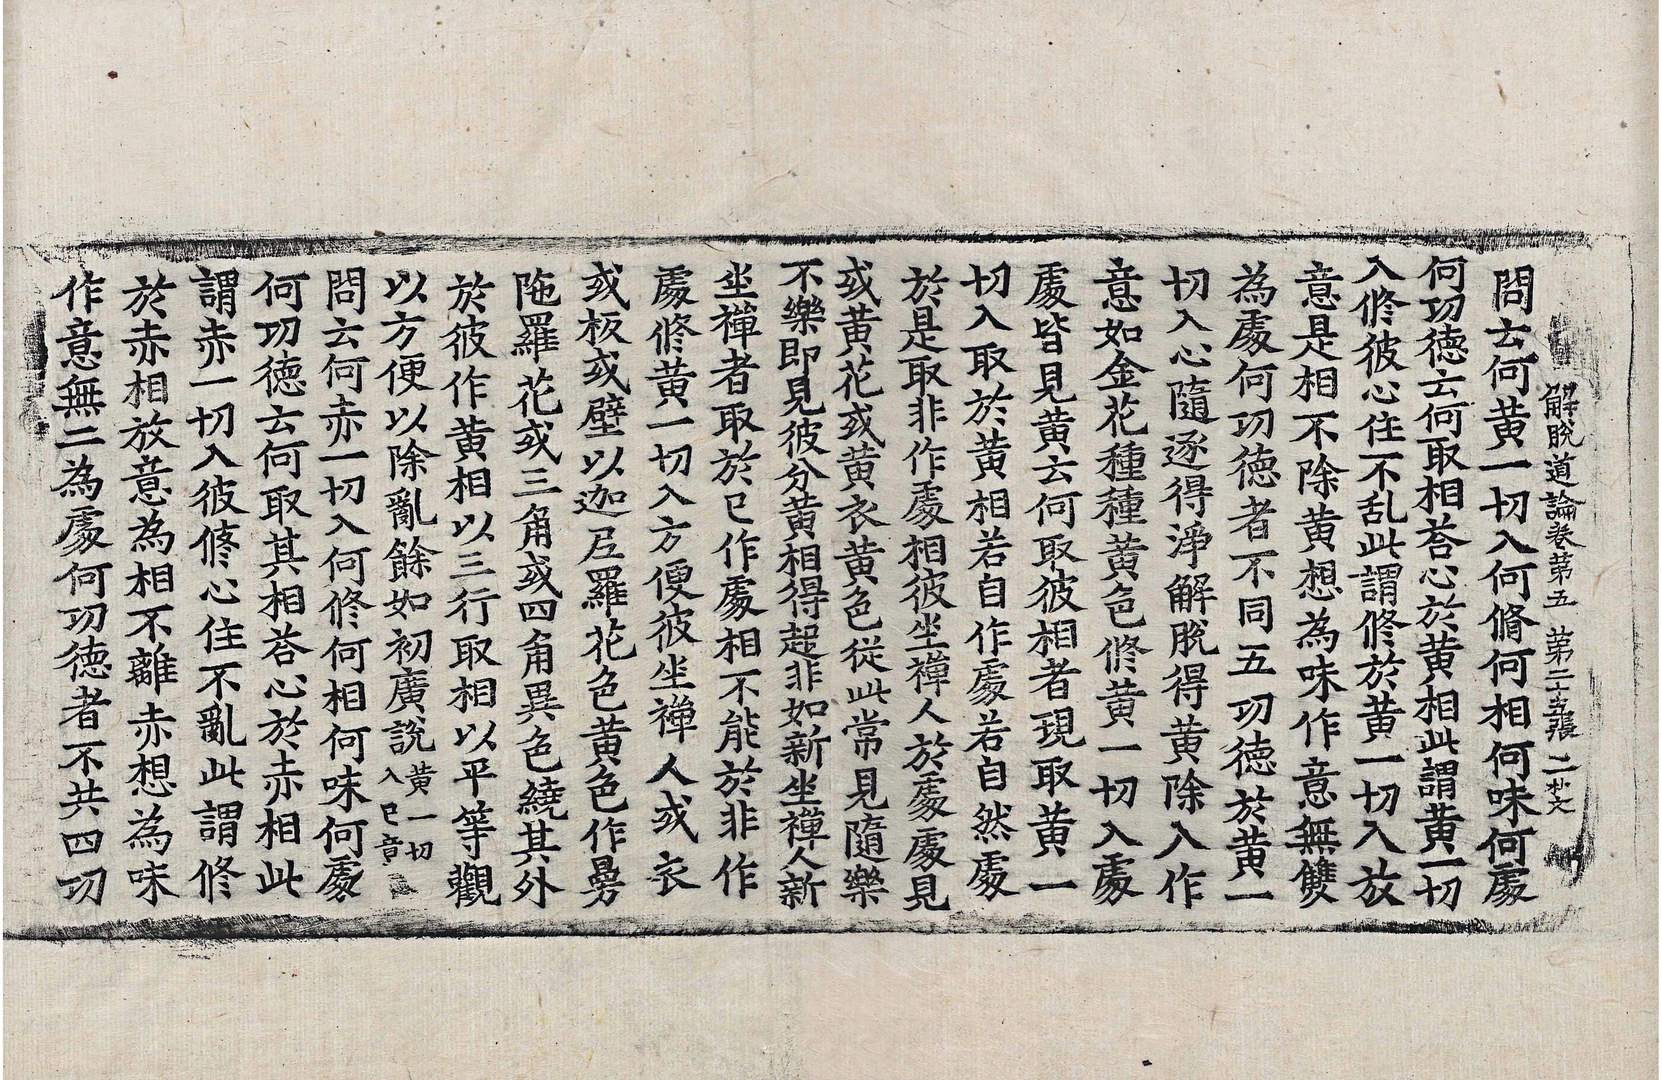 解脫道論卷第五 第二十五張 二杪文
問云何黄一切入何脩何相何味何處
何功德云何取相荅心於黄相此謂黄一切
入修彼心住不乱此謂修於黄一切入放
意是相不除黄想為味作意無雙
為處何功德者不同五功德於黄一
切入心隨逐得淨解脫得黄除入作
意如金花種種黄色修黄一切入處
處皆見黄云何取彼相者現取黄一
切入取於黄相若自作處若自然處
於是取非作處相彼坐禪人於處處見
或黄花或黄衣黄色從此常見隨樂
不樂即見彼分黄相得起非如新坐禪人新
坐禪者取於已作處相不能於非作
處修黄一切入方便彼坐禪人或衣
或板或壁以迦𡰱羅花色黄色作㬅
陁羅花或三角或四角異色繞其外
於彼作黄相以三行取相以平等觀
以方便以除亂餘如初廣說黄一切入已章
問云何赤一切入何修何相何味何處
何功德云何取其相荅心於赤相此
謂赤一切入彼修心住不亂此謂修
於赤相放意為相不離赤想為味
作意無二為處何功德者不共四功